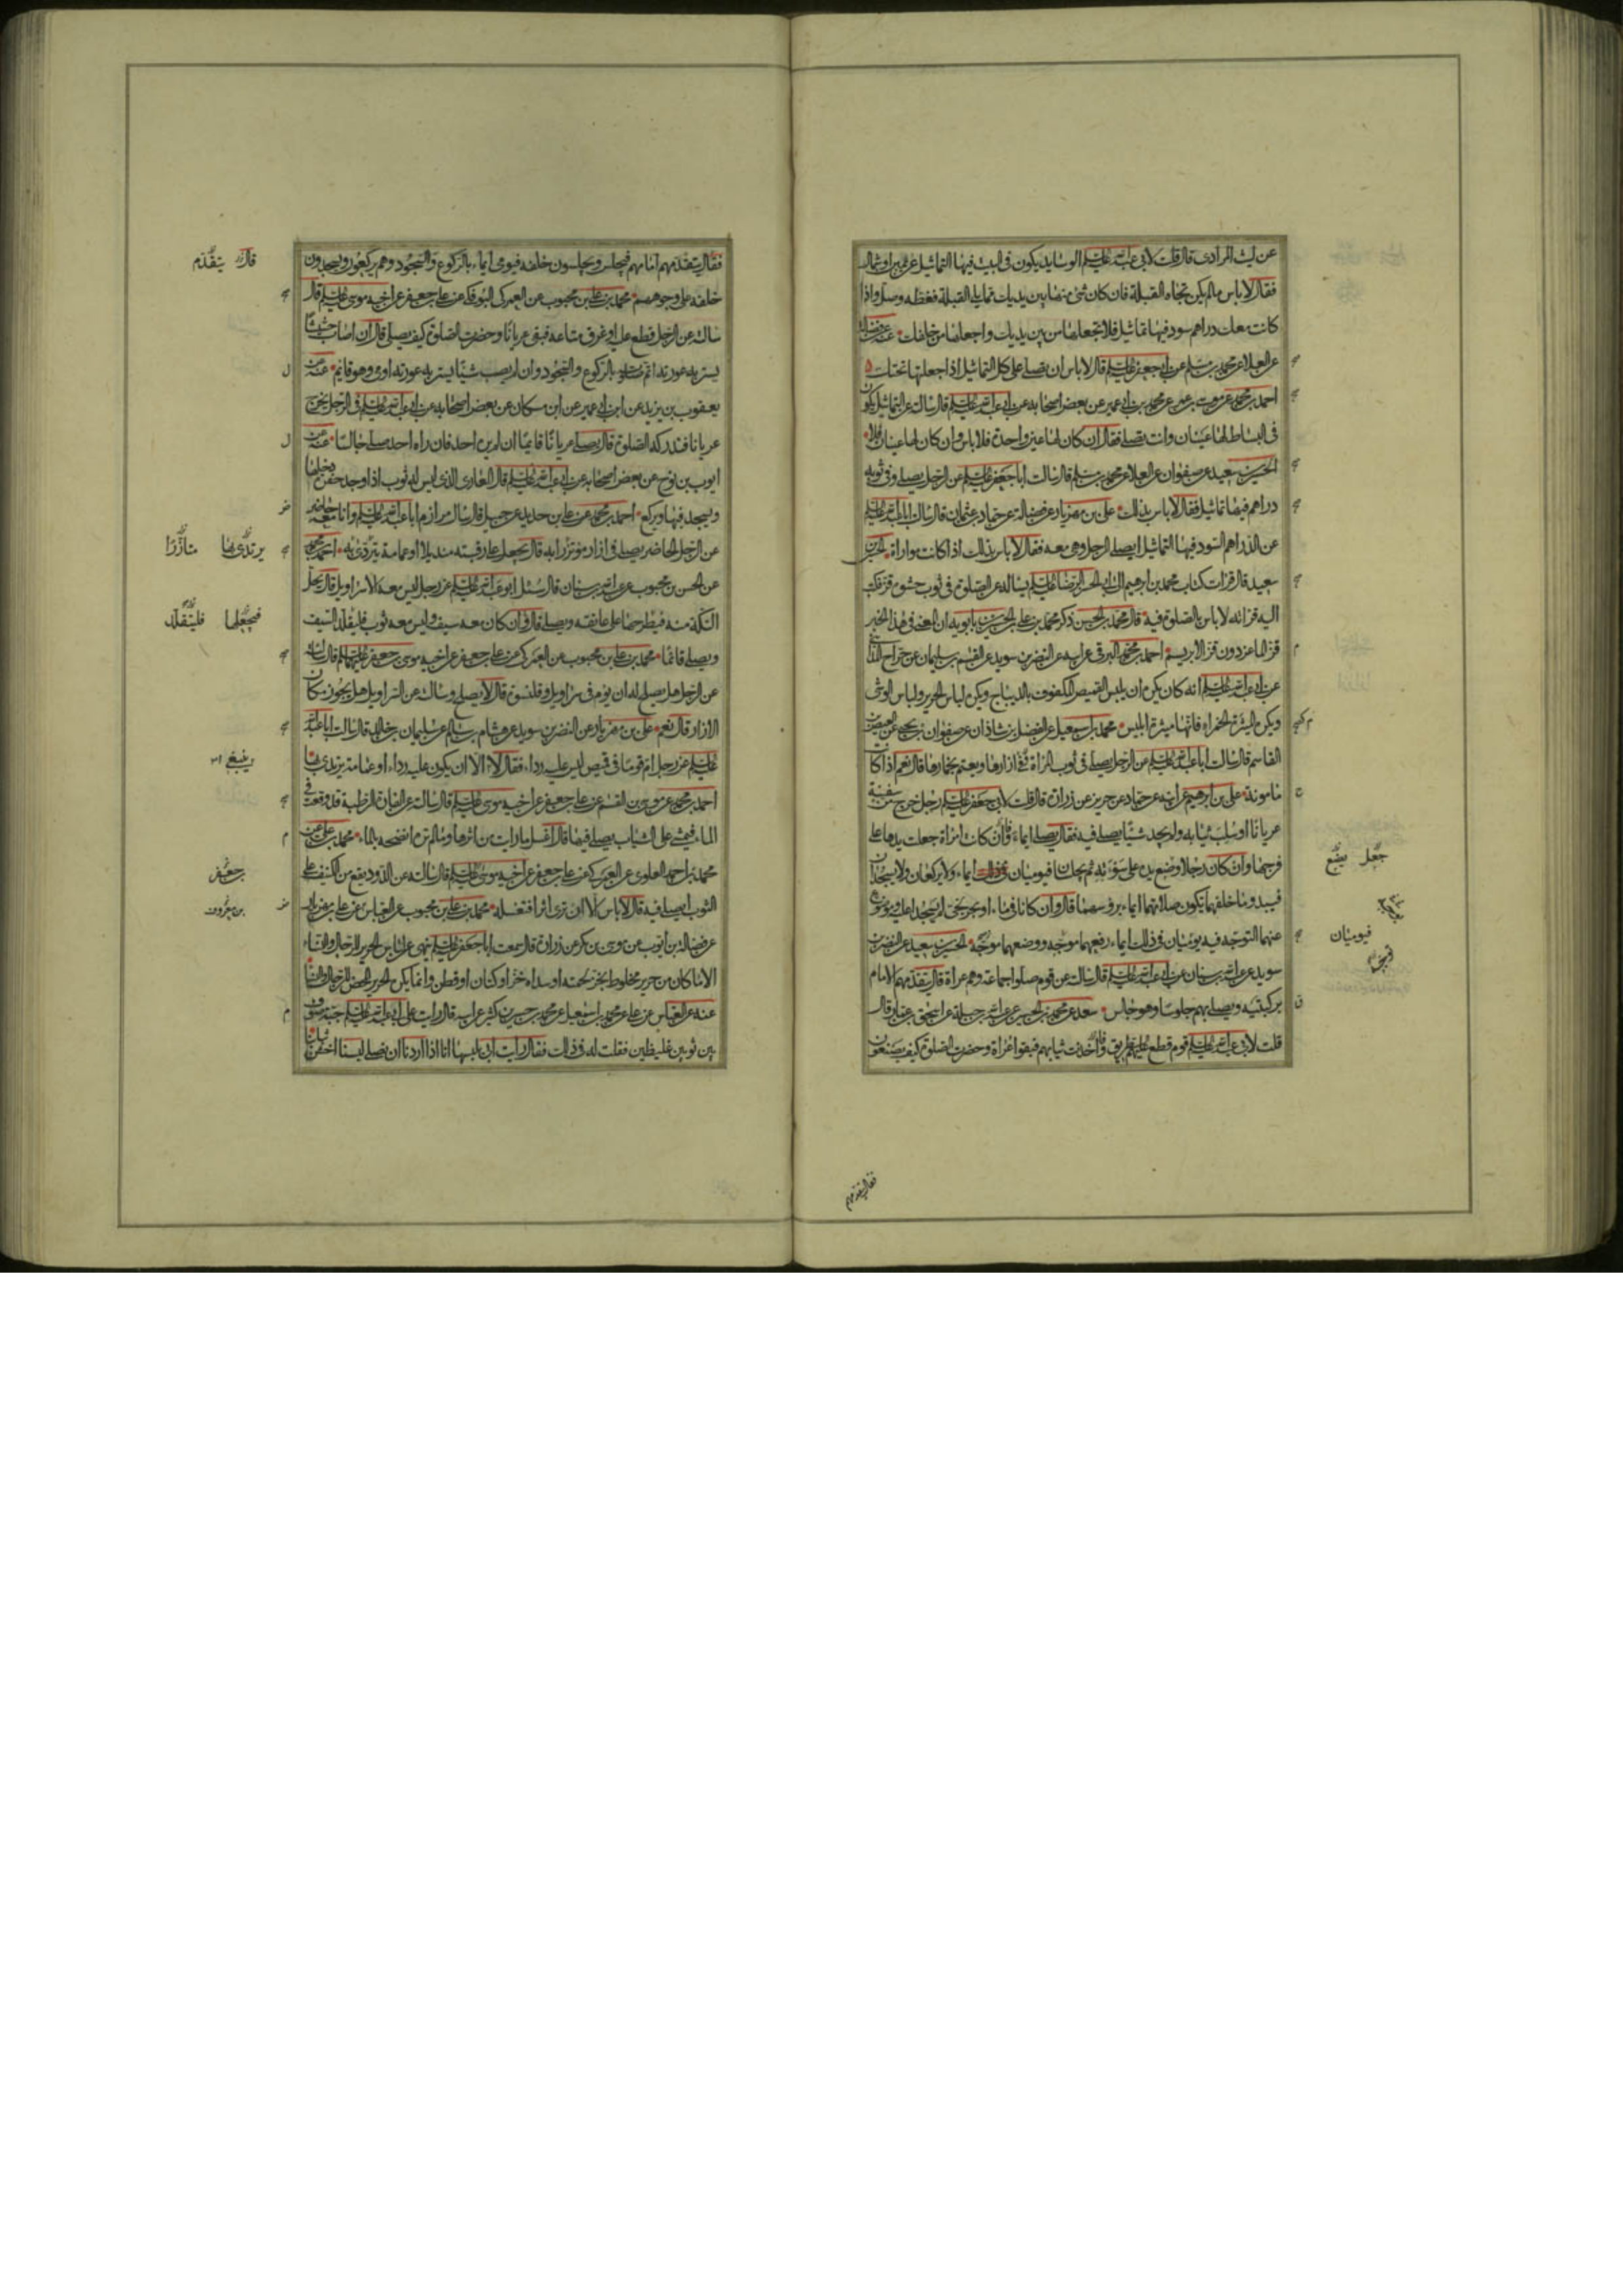 عن ليث المرادى قال قلت لابى عبد الله عليه السلم الوسايد يكون فى البيت فيها التماثيل عن يمين او شمال
فقال لا باس مالم يكن تجاه القبلة فان كان شئ منها بين يديك مما يلى القبلة فغطه وصل واذا
كانت معك دراهم سود فيها تماثيل فلا تجعلها من بين يديك واجعلها من خلفك عنه عن فضالة
عن العلا عن محمد بن مسلم عن ابى جعفر عليه السلم قال لا باس ان تصلى على كل التماثيل اذا جعلتها تحتك
احمد بن محمد عن موسى بن عمر عن محمد بن ابى عمير عن بعض اصحابه عن ابى عبد الله عليه السلم قال سالته عن التماثيل يكون
فى البساط لها عينان وانت تصلى فقال ان كان لها عين واحدة فلا باس وان كان لها عينان فلا
الحسين بن سعيد عن صفوان عن العلا عن محمد بن مسلم قال سالت ابا جعفر عليه السلم عن الرجل يصلى وفى ثوبه
دراهم فيها تماثيل فقال لا باس بذلك على بن مهزيار عن فضالة عن حماد بن عثمان قال سالت ابا عبد الله عليه السلم
عن الدراهم السود فيها التماثيل ايصلى الرجل وهى معه فقال لا باس بذلك اذا كانت مواراة الحسين بن
سعيد قال قرات كتاب محمد بن ابرهيم الى ابى الحسن الرضا عليه السلم يساله عن الصلوة فى ثوب حشوه قز فكتب
اليه قراته لا باس الصلوة فيه قال محمد بن الحسن ذكر محمد بن على بن الحسين بن بابويه ان المعنى فى هذا الخبر
قز الماعز دون قز الابريسم احمد بن محمد البرقى عن ابيه عن النضر بن سويد عن القسم بن سليمان عن جراح المدائنى
عن ابى عبد الله عليه السلم انه كان يكره ان يلبس القميص المكفوف بالديباج ويكره لباس الحرير ولباس الوشى
ويكره الميثرة الحمراء فانها ميثرة ابليس محمد بن اسمعيل عن الفضل بن شاذان عن صفوان بن يحيى عن العيص بن
القاسم قال سالت ابا عبد الله عليه السلم عن الرجل يصلى فى ثوب المراة وفى ازارها ويعتم بخمارها قال نعم اذا كانت
مامونة على بن ابرهيم عن ابيه عن حماد عن حريز عن زرارة قال قلت لابى جعفر عليه السلم رجل خرج من سفينة
عريانا او سلب ثيابه ولم يجد شيئا يصلى فيه فقال يصلى ايماء وان كانت امراة جعلت يدها على
فرجها وان كان رجلا وضع يده على سوءته ثم يجلسان فيوميان ايماء ولا يركعان ولا يسجدان
فيبدو ما خلفهما يكون صلاتهما ايماء برؤسهما قال وان كانا فى ماء او بحر لجى لم يسجدا عليه وموضوع
عنهما التوجه فيه يوميان فى ذلك ايماء رفعهما موجه ووضعهما موجه الحسين بن سعيد عن النضر بن
سويد عن عبد الله بن سنان عن ابى عبد الله عليه السلم قال سالته عن قوم صلوا جماعة وهم عراة قال يتقدمهم الامام
بركبتيه ويصلى بهم جلوسا وهو جالس سعد عن محمد بن الحسين عن عبد الله بن جبلة عن اسحق بن عمار قال
قلت لابى عبد الله عليه السلم قوم قطع عليهم الطريق واخذت ثيابهم فبقوا عراة وحضرت الصلوة كيف يصنعون
جعل يضع
فيوميان
فقال يتقدمهم
فقال يتقدمهم امامهم فيجلس ويجلسون خلفه فيومى ايماء بالركوع والسجود وهم يركعون ويسجدون
خلفه على وجوههم محمد بن على بن محبوب عن العمركى البوفكى عن على بن جعفر عن اخيه موسى عليه السلم قال
سالته عن الرجل قطع عليه او غرق متاعه فبقى عريانا وحضرت الصلوة كيف يصلى قال ان اصاب حشيشا
يستر به عورته اتم صلوته بالركوع والسجود وان لم يصب شيئا يستر به عورته اومى وهو قائم عنه عن
يعقوب بن يزيد عن ابن ابى عمير عن ابن مسكان عن بعض اصحابه عن ابى عبد الله عليه السلم فى الرجل يخرج
عريانا فتدركه الصلوة قال يصلى عريانا قائما ان لم يره احد فان راه احد صلى جالسا عنه عن
ايوب بن نوح عن بعض اصحابه عن ابى عبد الله عليه السلم قال العارى الذى ليس له ثوب اذا وجد حفيرة دخلها
ويسجد فيها ويركع احمد بن محمد عن على بن حديد عن جميل قال سال مرازم ابا عبد الله عليه السلم وانا معه حاضر
عن الرجل الحاضر يصلى فى ازار مؤتزرا به قال يجعل على رقبته منديلا او عمامة يتردى به احمد بن محمد
عن الحسن بن محبوب عن عبد الله بن سنان قال سئل ابو عبد الله عليه السلم عن رجل ليس معه الا سراويل قال يحل
التكة منه فيطرحها على عاتقه ويصلى قال وان كان معه سيف وليس معه ثوب فليتقلد السيف
ويصلى قائما محمد بن على بن محبوب عن العمركى عن على بن جعفر عن اخيه موسى بن جعفر عليهما السلم قال سالته
عن الرجل هل يصلح له ان يؤم فى سراويل وقلنسوة قال لا يصلح وسالته عن السراويل هل يجوز مكان
الازار قال نعم على بن مهزيار عن النضر بن سويد عن هشام بن سالم عن سليمان بن خالد قال سالت ابا عبد الله
عليه السلم عن رجل ام قوما فى قميص ليس عليه رداء فقال لا الا ان يكون عليه رداء او عمامة يرتدى بها
احمد بن محمد عن موسى بن القسم عن على بن جعفر عن اخيه موسى عليه السلم قال سالته عن الفارة الرطبة قد وقعت فى
الماء فتمشى على الثياب يصلى فيها قال اغسل ما رايت من اثرها وما لم تره انضحه بالماء محمد بن على عن
محمد بن احمد العلوى عن العمركى عن على بن جعفر عن اخيه موسى عليه السلم قال سالته عن الدود يقع من الكنيف على
الثوب ايصلى فيه قال لا باس الا ان ترى اثرا فتغسله محمد بن على بن محبوب عن العباس عن على بن مهزيار
عن فضالة بن ايوب عن موسى بن بكر عن زرارة قال سمعت ابا جعفر عليه السلم ينهى عن لباس الحرير للرجال والنساء
الا ما كان من حرير مخلوط بخز لحمته او سداه خز او كتان او قطن وانما يكره الحرير المحض للرجال والنساء
عنه عن العباس عن على عن محمد بن اسمعيل عن محمد بن حسين بن كثير عن ابيه قال رايت على ابى عبد الله عليه السلم جبة صوف
بين ثوبين غليظين فقلت له فى ذلك فقال رايت ابى يلبسها انا اذا اردنا ان نصلى لبسنا اخشن ثيابنا
قال يتقدم
يرتدى بها متازرا
فيجعلها فليتقلد
ينبغى
بن جعفر